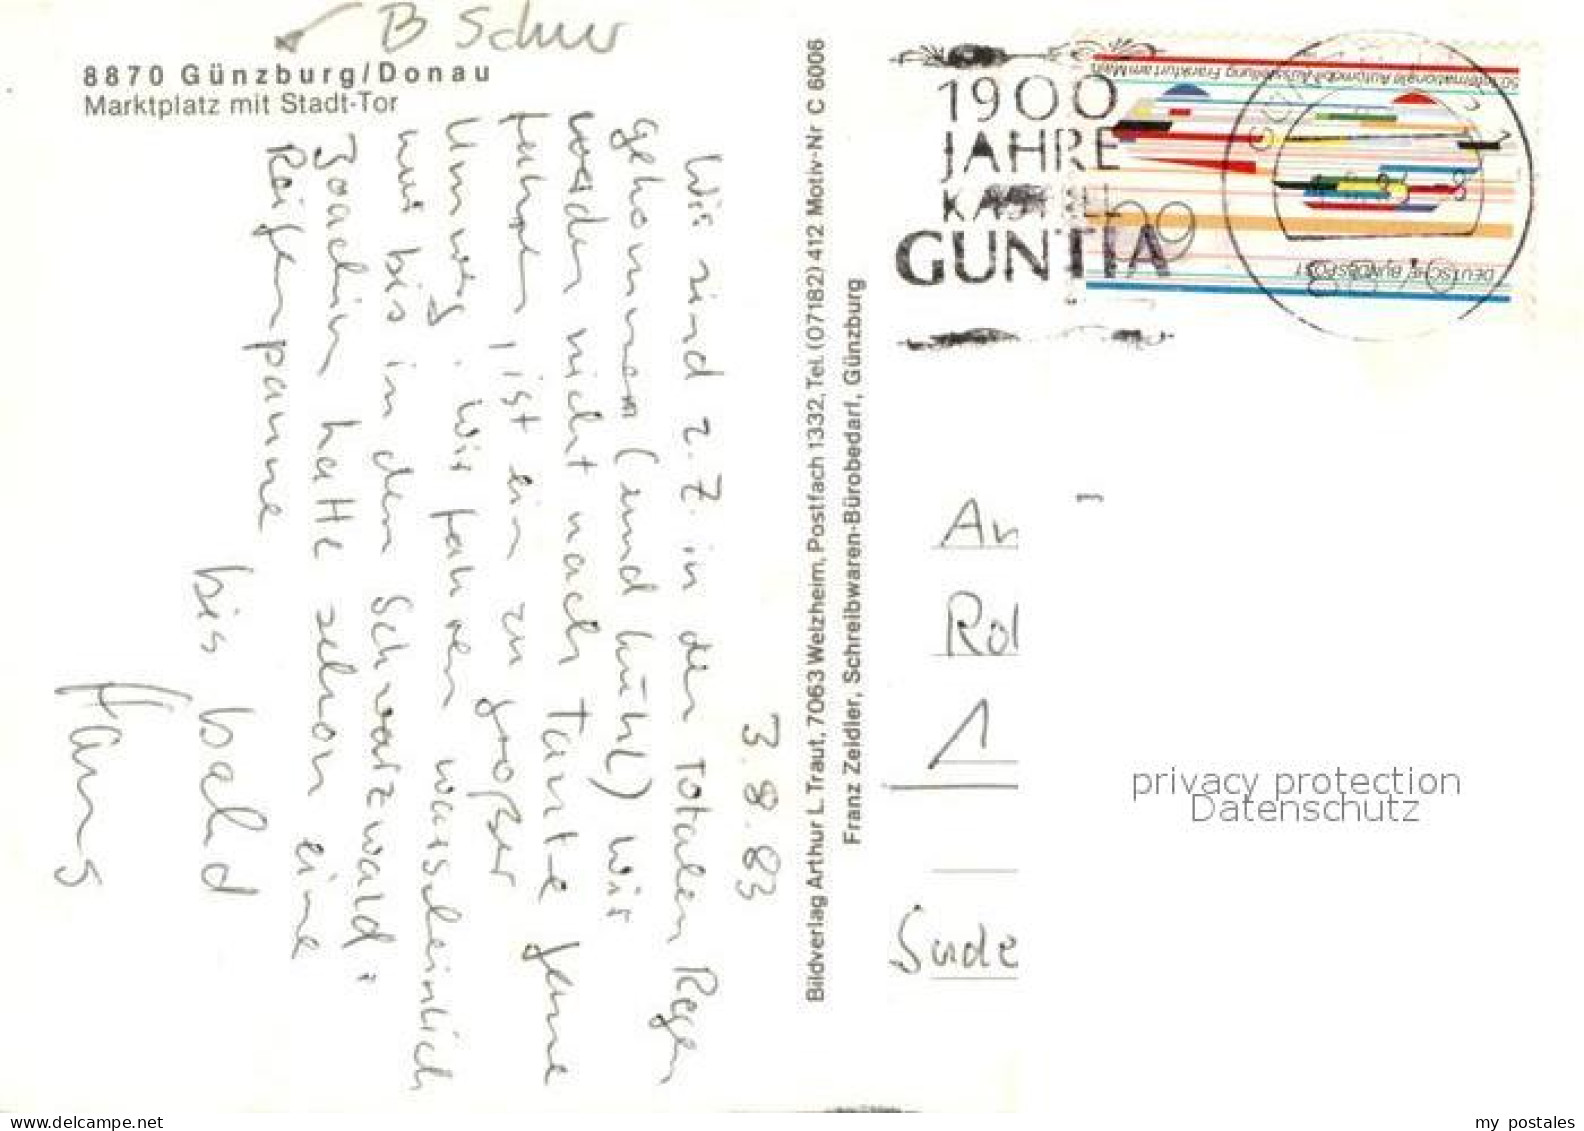 B Schur
8870 Günzburg/Donau
Marktplatz mit Stadt-Tor
3.8.83
Wir sind z.Z. in den Totalen Regen
gekommen (und kühl) Wir
werden nicht nach Tante Jenne
fahren, ist ein zu großer
Umweg. Wir fahren warscheinlich
nur bis in den Schwarzwald.
Joachim hatte schon eine
Reifenpanne
bis bald
Hans
Bildverlag Arthur L. Traut, 7063 Welzheim, Postfach 1332, Tel. (07182) 412 Motiv-Nr C 6006
Franz Zeidler, Schreibwaren-Bürobedarf, Günzburg
1900
JAHRE
KASTELL
GUNTIA
50. Internationale Automobil-Ausstellung Frankfurt am Main
60
DEUTSCHE BUNDESPOST
8870
An
Rol
1
Sude
privacy protection
Datenschutz
delcampe.net
my_postales